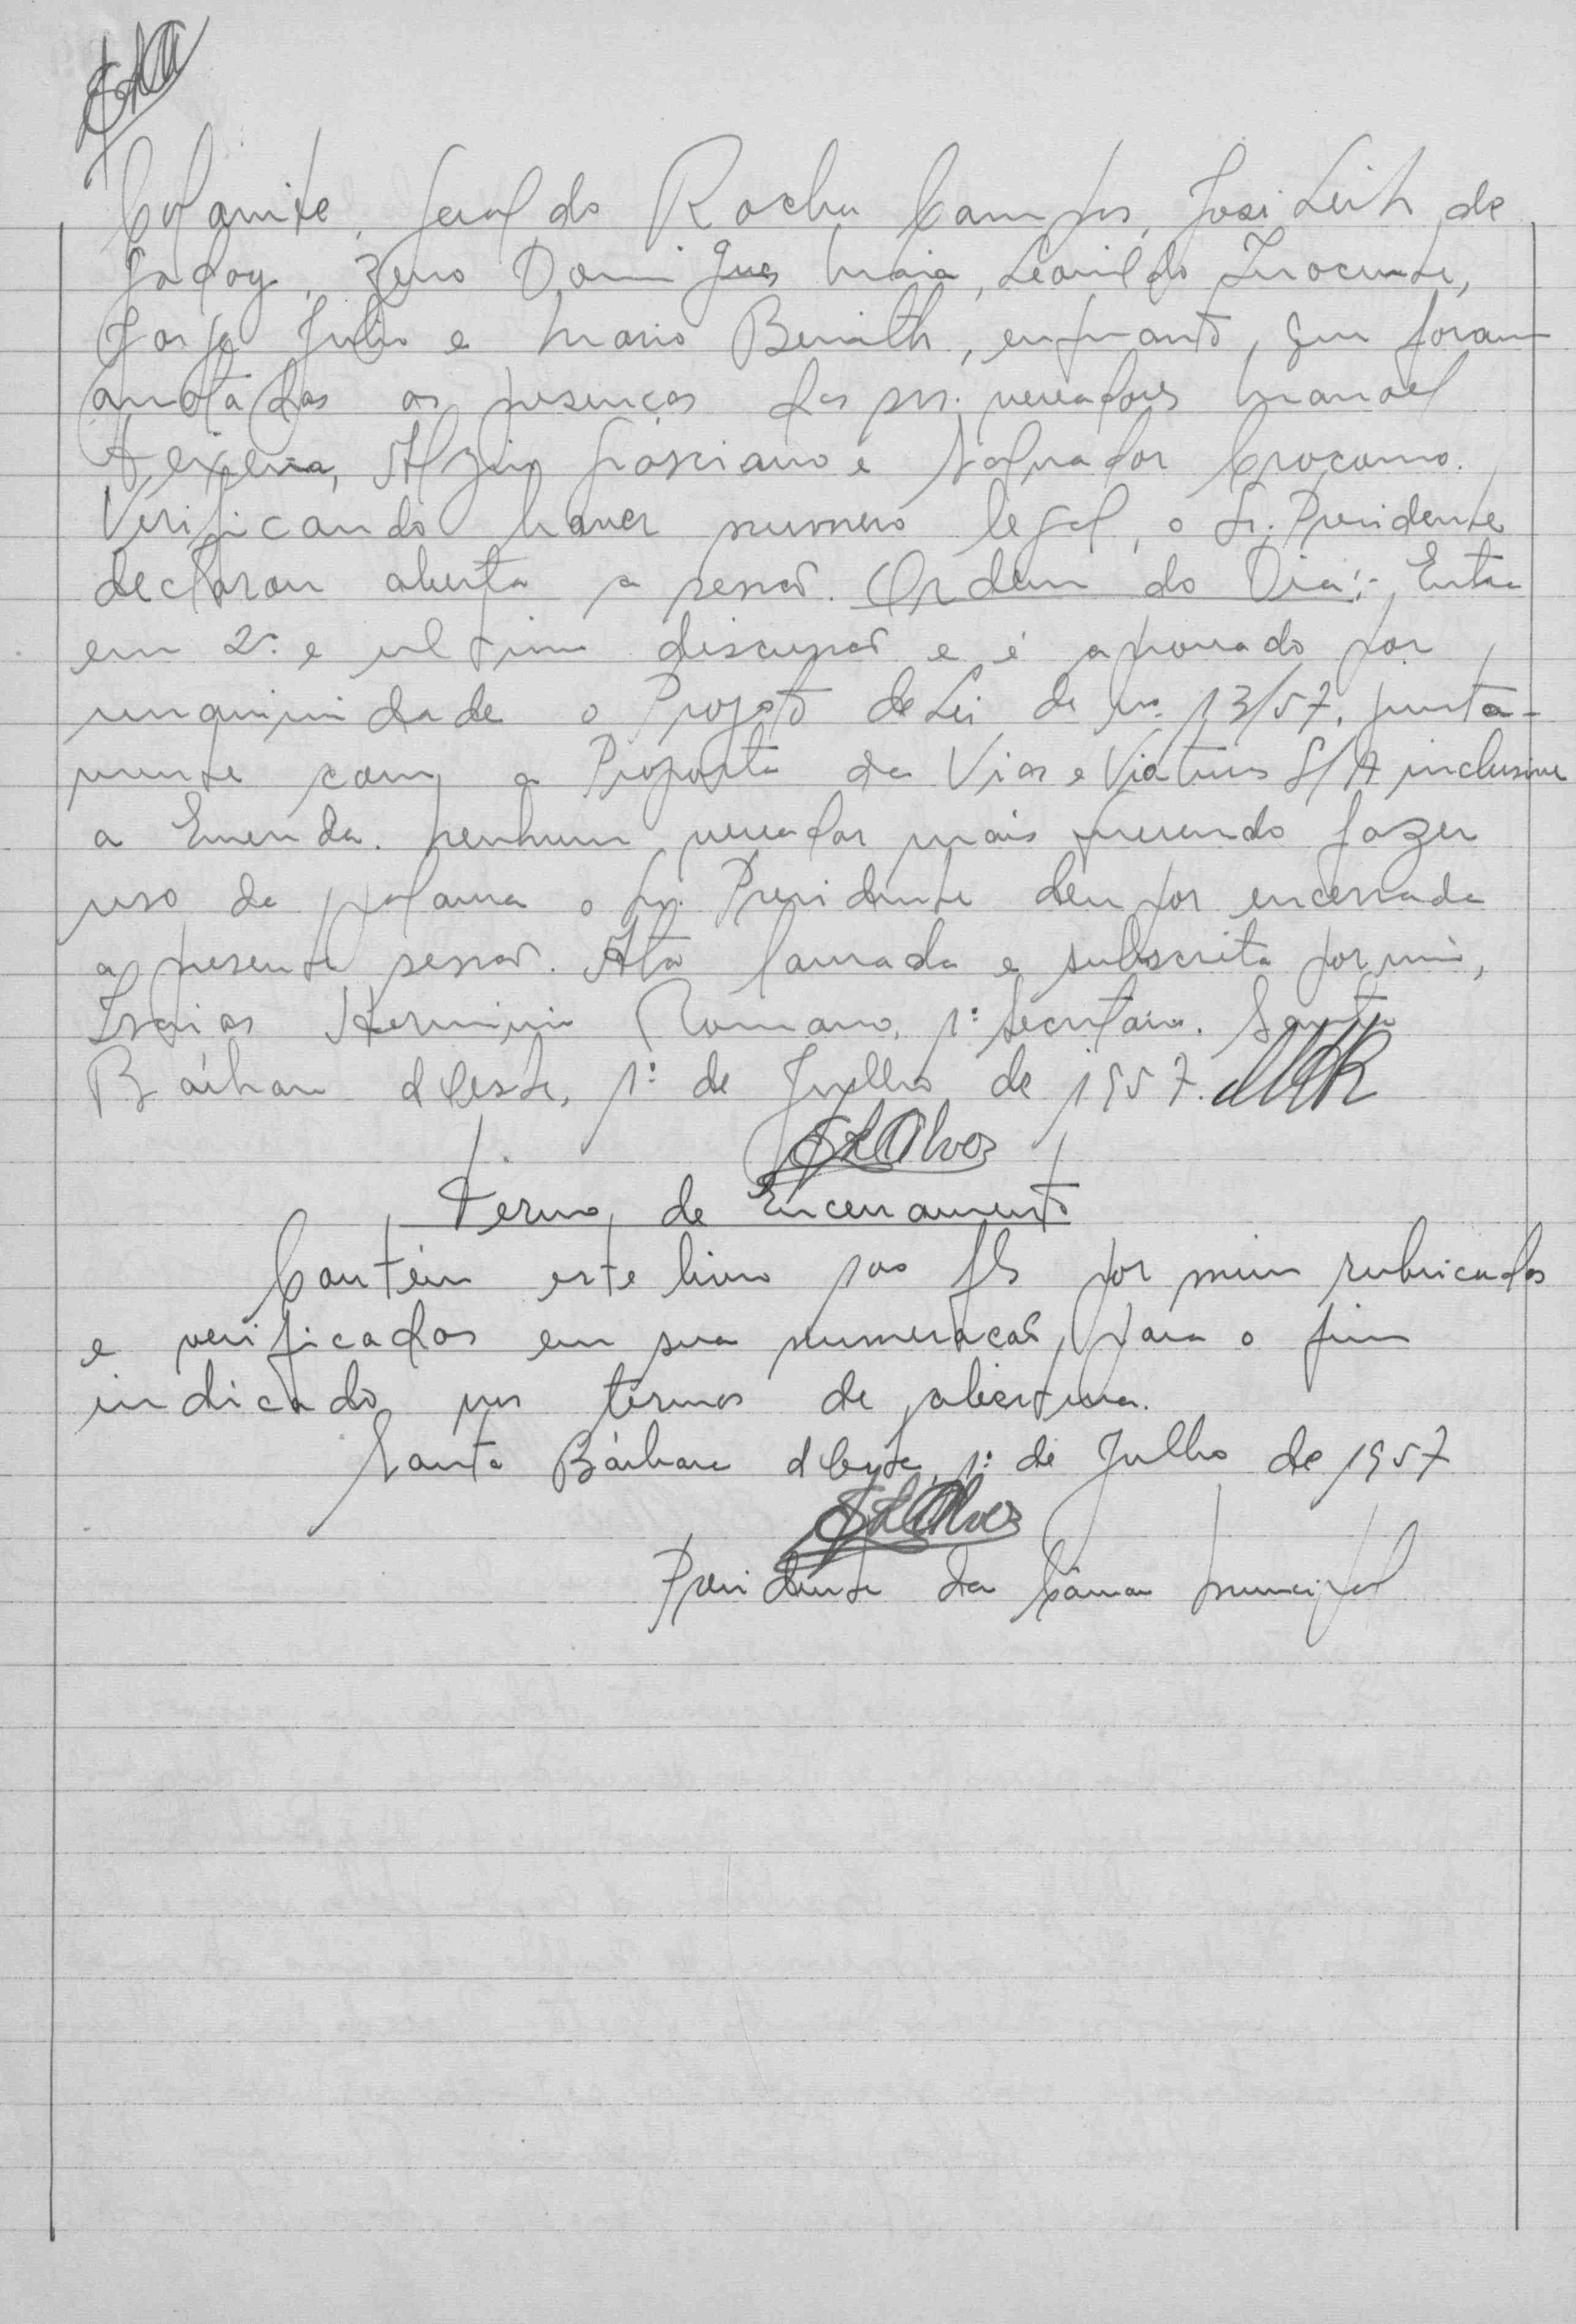 Geraldo Rocha Campos, José Leite de
Godoy, Zeno Domingues Maia, Leonildo Inocente,
Jorge Julio e Mario Benith, enquanto que foram
anotadas as presenças dos srs. vereadores Manoel
Teixeira, Alzino Grasciano e Salvador Crocomo.
Verificando haver numero legal, o Sr. Presidente
declarou aberta a sessão. Ordem do Dia:- Entra
em 2ª e ultima discussão e é aprovado por
unanimidade o Projeto de Lei de nº 13/57, junta-
mente com a Proposta da Vias e Viaturas S/A inclusive
a Emenda. Nenhum vereador mais querendo fazer
uso da palavra o Sr. Presidente deu por encerrada
a presente sessão. Ata lavrada e subscrita por mim,
Isaias Herminio Romano, 1º Secretario. Santa
Bárbara d'Oeste, 1º de Julho de 1957.
Termo de Encerramento
Contém este livro 100 fls por mim rubricadas
e verificadas em sua numeração, para o fim
indicado nos termos de abertura.
Santa Bárbara d'Oeste, 1º de Julho de 1957
Presidente da Câmara Municipal